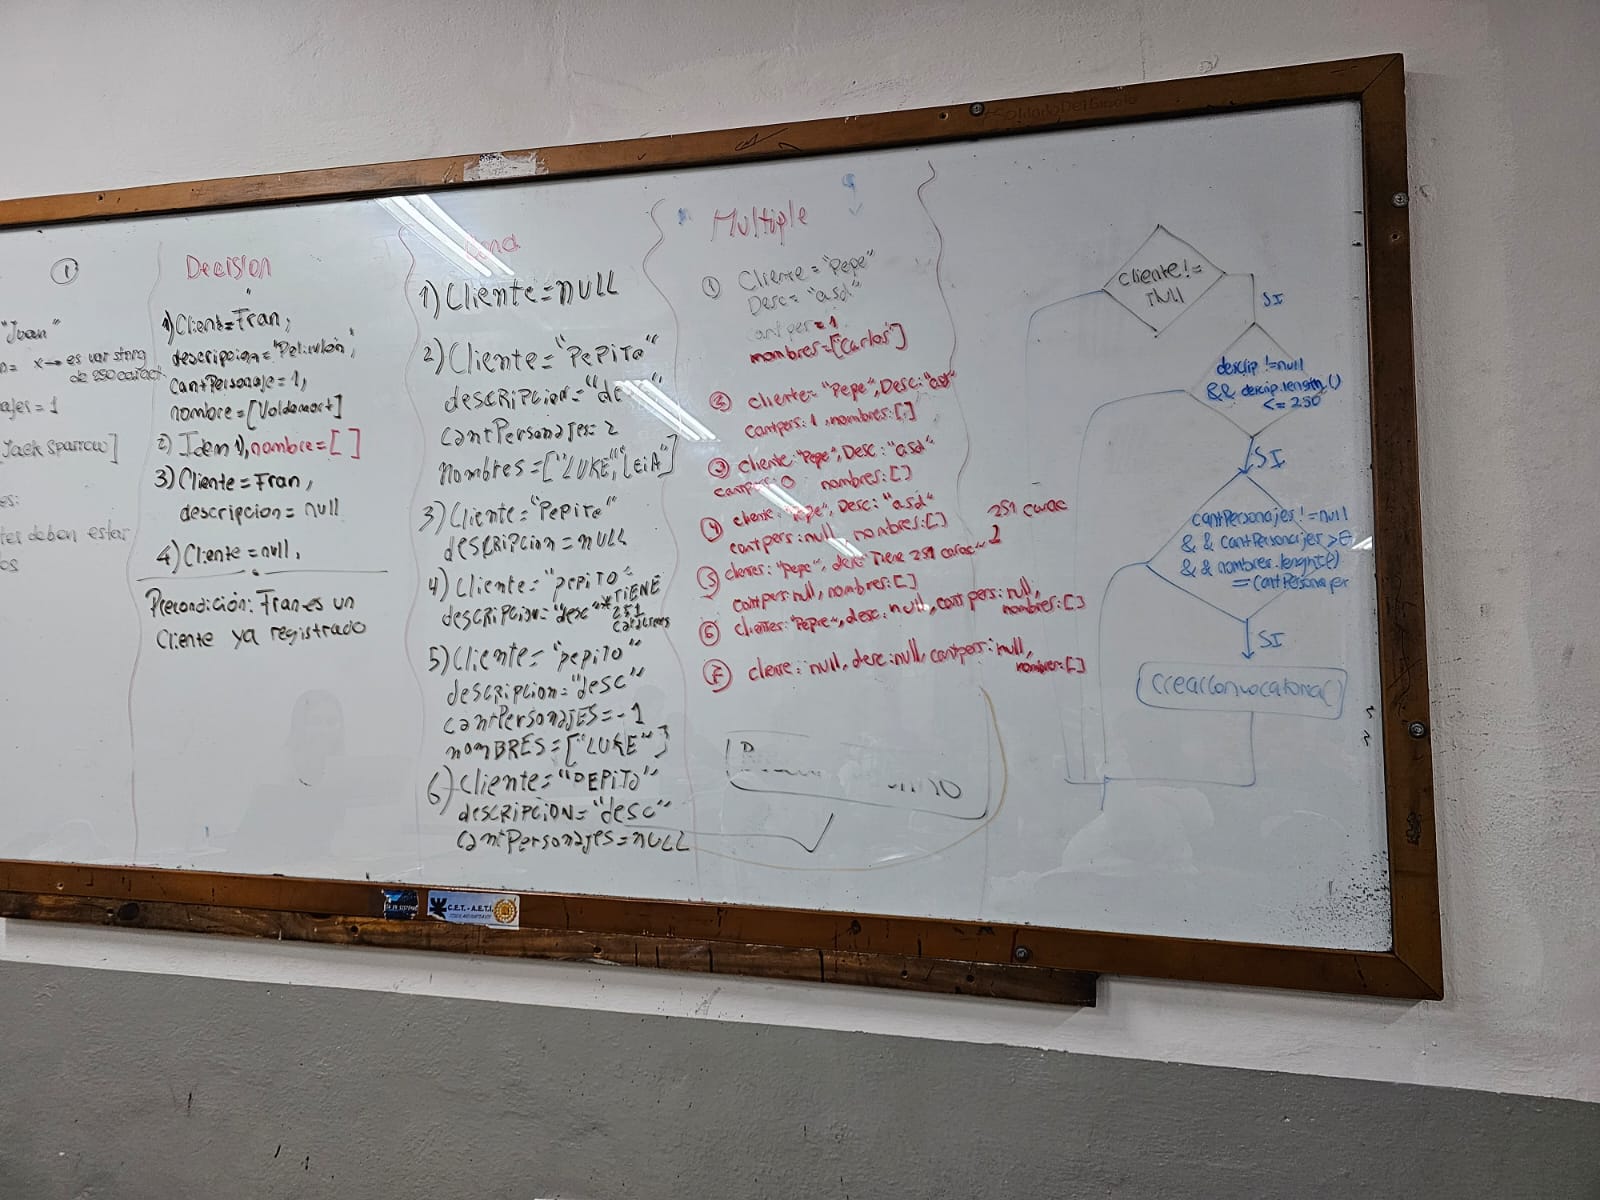 ①
"Juan"
x → es var string
de 250 caract.
ajes = 1
[Jack Sparrow]
es:
tes deben estar
os
Decisión
1) Client=Fran,
descripcion="Peliculón",
cantPersonaje=1,
nombre=[Voldemort]
2) Idem 1), nombre=[ ]
3) Cliente=Fran,
descripcion=null
4) Cliente=null,
Precondición: Fran es un
Cliente ya registrado
1) Cliente=null
2) Cliente="PePiTo"
descripcion="de
cantPersonajes=2
nombres=["LUKE","LeiA"]
3) Cliente="Pepito"
descripcion=null
4) Cliente="pepiTo"
descripcion="desc" *TIENE
251
caracteres
5) Cliente="pepiTo"
descripcion="desc"
cantPersonajes=-1
nombres=["LUKE"]
6) Cliente="PEPiTo"
descripcion="desc"
cantPersonajes=null
Multiple
① Cliente="Pepe"
Desc="asd"
cantper=1
nombres=["Carlos"]
② cliente="Pepe", Desc:"asd"
cantpers:1, nombres:[,]
③ cliente:"Pepe", Desc:"asd"
cantpers:0 nombres:[]
④ cliente:"Pepe", Desc:"asd"
cantpers:null, nombres:[]
251 carac
⑤ "Pepe", desc"Tiene 251 carac"
cantpers:null, nombres:[]
⑥ desc:null, cantpers:null,
nombres:[]
null, desc:null, cantpers:null,
nombres:[]
cliente !=
null
SI
descrip !=null
&& descrip.length()
<= 250
SI
cantPersonajes !=null
&& cantPersonajes >0
&& nombres.lenght()
==cantPersonajes
SI
crearConvocatoria()
C.E.T. - A.E.T.I.